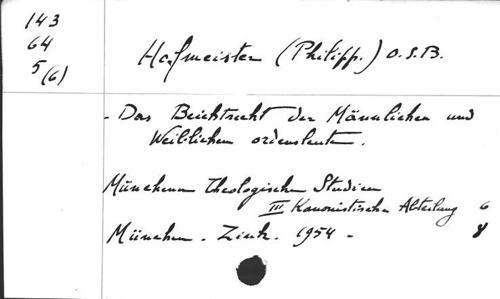 143
64
5(6)
Hofmeister (Philipp.) O.S.B.
- Das Beichtrecht der Männlichen und
Weiblichen ordensleuten.
Münchener Theologische Studien
III Kanonistische Abteilung 6
München. Zink. 1954 - 8